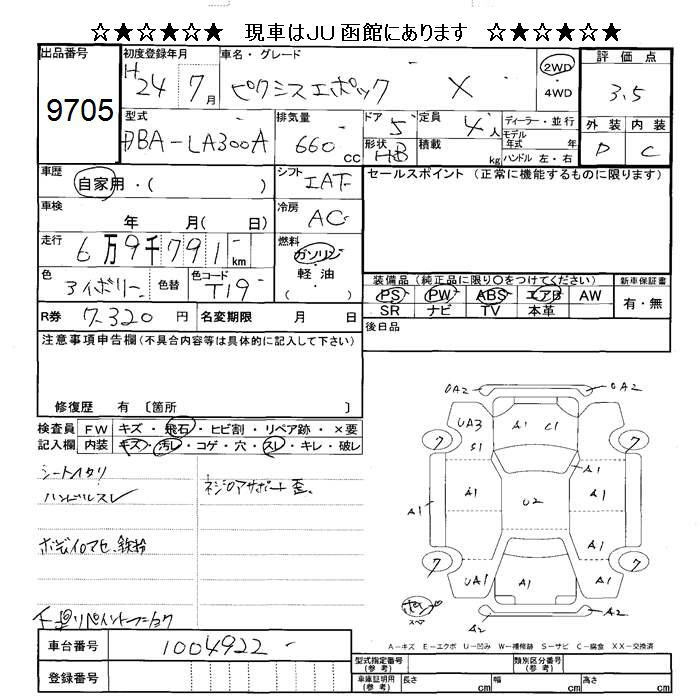 ☆★☆★☆★ 現車はJU函館にあります ☆★☆★☆★
出品番号
9705
初度登録年月
H24 7月
車名・グレード
ピクシスエポック X
2WD
4WD
評価点
3.5
型式
DBA-LA300A
排気量
660 cc
ドア
5
定員
4人
形状
HB
積載
kg
ディーラー・並行
モデル年式 年
ハンドル 左・右
外装
D
内装
C
車歴
自家用・( )
シフト
IAT
セールスポイント (正常に機能するものに限ります)
車検
年 月( 日)
冷房
AC
走行
6万9千791km
燃料
ガソリン
軽油
( )
色
アイボリー
色替
色コード
T19
装備品(純正品に限り〇をつけてください)
PS PW ABS エアB AW
SR ナビ TV 本革
新車保証書
有・無
R券
7,320円
名変期限 月 日
後日品
注意事項申告欄(不具合内容等は具体的に記入して下さい)
修復歴 有 〔箇所 〕
検査員記入欄
FW キズ・飛石・ヒビ割・リペア跡・×要
内装 キズ・汚レ・コゲ・穴・スレ・キレ・破レ
シートヘタリ
ハンドルスレ
ラジアサポート歪
ボディイロアセ、鉄粉
下廻リペイントフショク
UA2
UA2
UA3
S1
A1
C1
7
7
A1
A1
A1
U2
A1
A1
A1
7
7
UA1
A1
A1
A2
A2
スペア
A-キズ E-エクボ U-凹み W-補修跡 S-サビ C-腐食 XX-交換済
車台番号
1004922
登録番号
型式指定番号(参考)
類別区分番号(参考)
車庫証明用(参考)
長さ cm
幅 cm
高さ cm